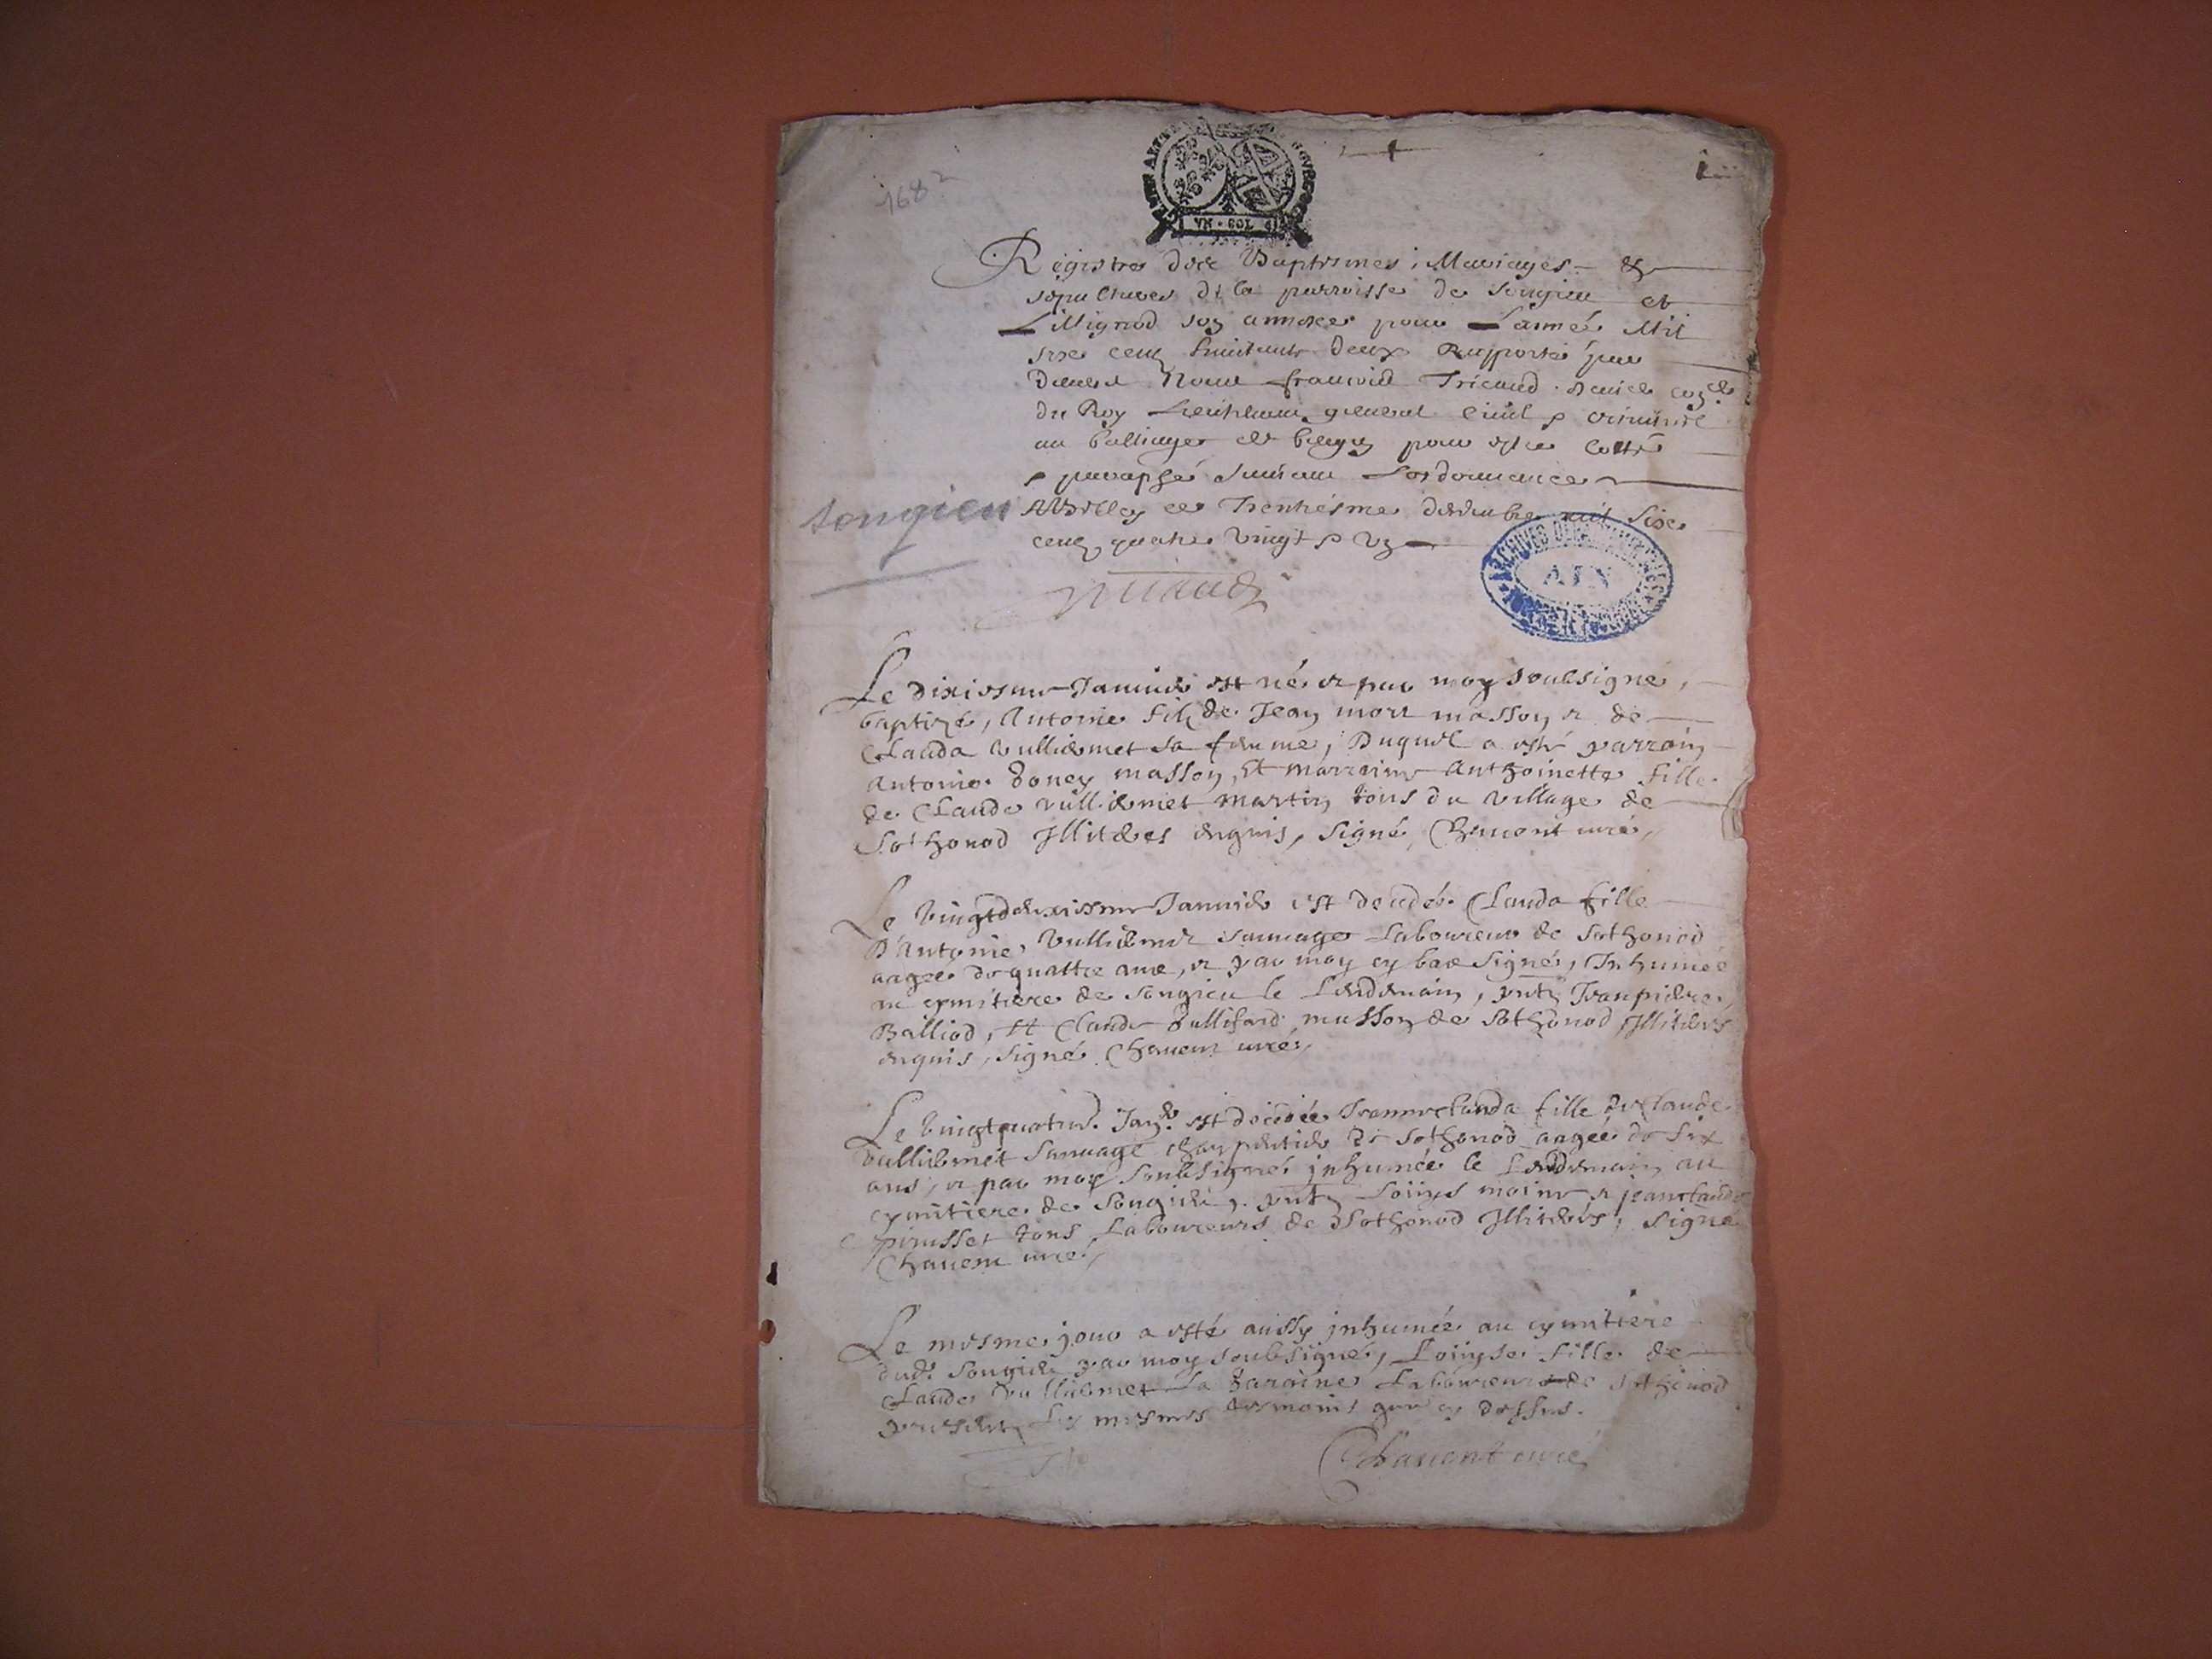 1682
Registre des Baptesmes, Mariages &
sepultures de la parroisse de Songieu et
Lillignod son annexe pour L'année Mil
sixe cens huictante deux Rapporté par
devant Nous francois Tricaud
du Roy Lieutenant general civil & criminel
au balliage de bugey pour estre cotté
& paraphé suivant Lordonnance
A Belley ce Trentiesme decembre mil sixe
cens quatre vingt & un
songieu
Tricaud
ARCHIVES DEPARTEMENTALES
AIN
Le dixiesme Janvier est né et par moy soubsigné,
baptizé, Antoine filz de Jean mort masson et de
Clauda vulliermet sa femme, Duquel a esté parrain
Antoine masson, et marraine Anthoinette fille
de Claude vulliermet martin tous du village de
Sothonod Illiteres enquis, signé, Chavent curé,
Le vingtdeuxiesme Janvier est decedée Clauda fille
D'Antoine Vulliermet sauvage Laboureur de Sothonod
aagée de quattre ans, et par moy cy bas signé, Inhumée
au cymitiere de songieu le Lendemain, pntz Jeanpierre
Balliod, et Claude masson de Sothonod Illiteres
enquis, signé Chavent curé,
Le vingtquatre Janer. est decedée Jeanneclauda fille de Claude
vulliermet Sauvage charpentier de Sothonod aagée de six
ans, et par moy soubsigné inhumée le Lendemain au
cymitiere de Songieu, pntz Louys moine et jeanclaude
tous Laboureurs de Sothonod Illiteres, signé
Chavent curé,
Le mesme jour a esté aussy inhumée au cymitiere
dudt. Songieu par moy soubsigné, Louyse fille de
Claude vulliermet La Laboureur de Sothonod
presentz Les mesmes tesmoins que cy dessus.
Chavent curé